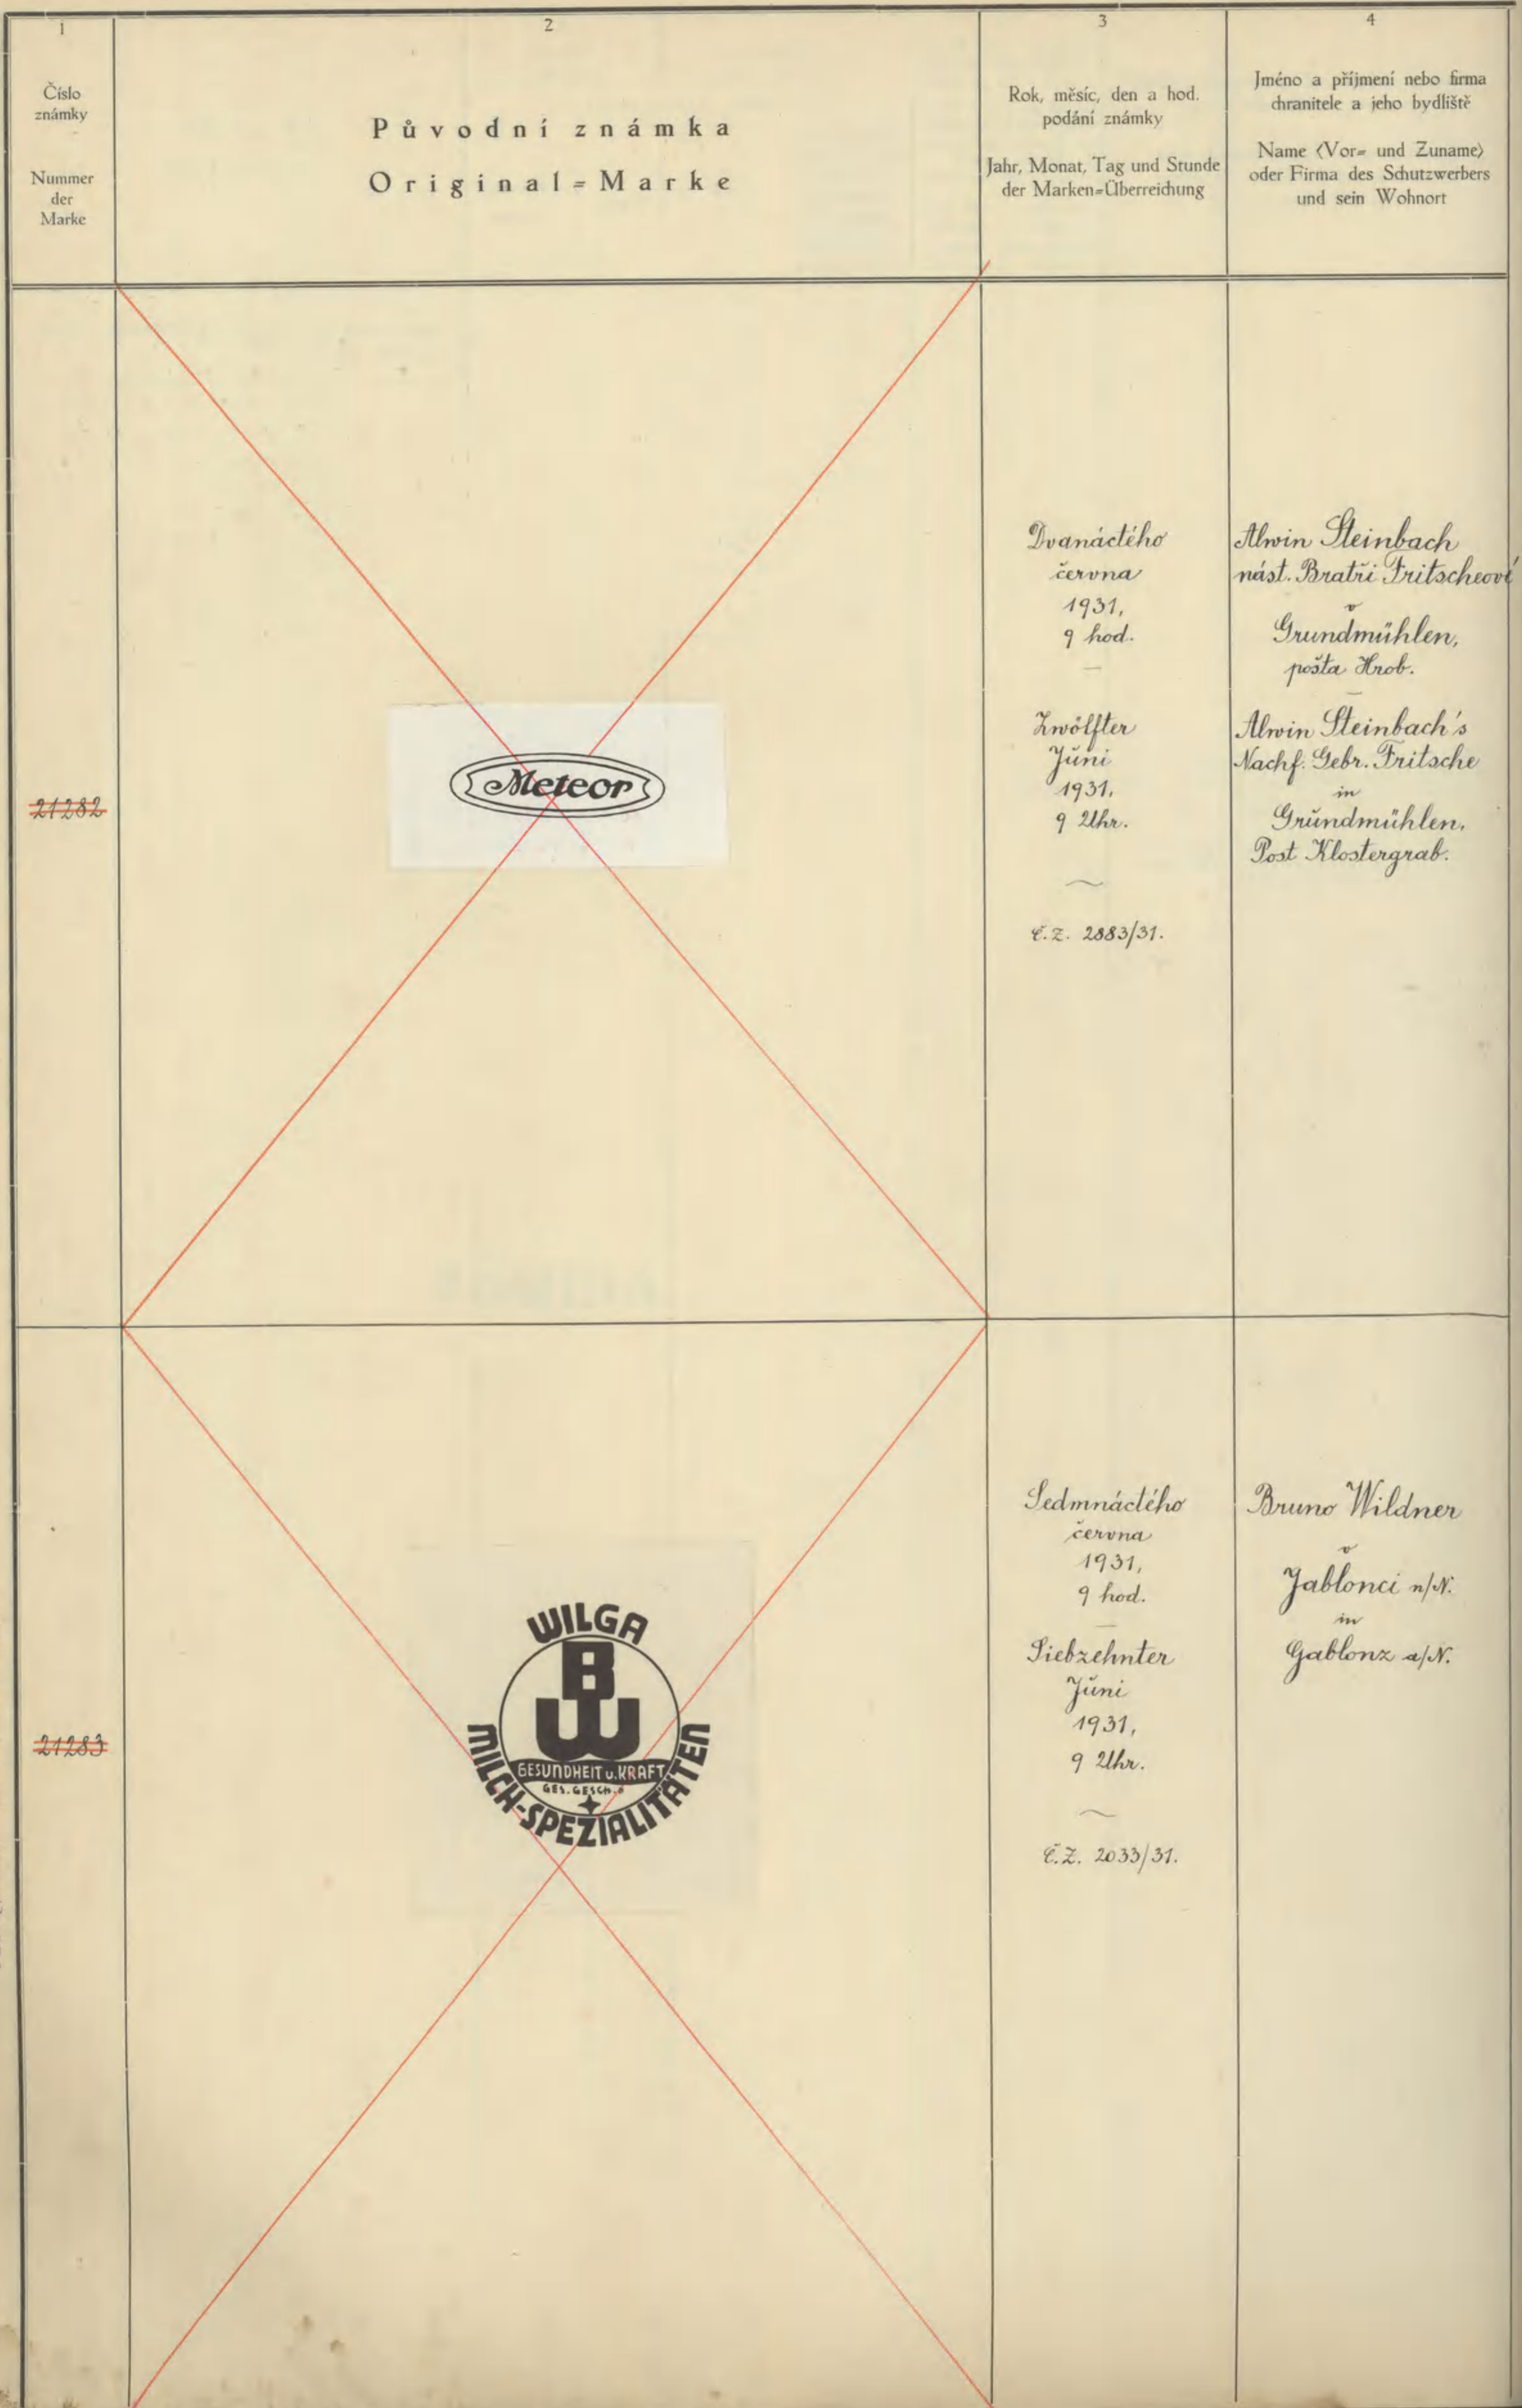 1
Číslo
známky
Nummer
der
Marke
2
Původní známka
Original=Marke
3
Rok, měsíc, den a hod.
podání známky
Jahr, Monat, Tag und Stunde
der Marken=Überreichung
4
Jméno a příjmení nebo firma
chranitele a jeho bydliště
Name (Vor= und Zuname)
oder Firma des Schutzwerbers
und sein Wohnort
21282
Meteor
Dvanáctého
června
1931,
9 hod.
Zwölfter
Juni
1931,
9 Uhr.
Č.Z. 2883/31.
Alwin Steinbach
nást. Bratři Fritscheové
v
Grundmühlen,
pošta Hrob.
Alwin Steinbach's
Nachf. Gebr. Fritsche
in
Grundmühlen,
Post Klostergrab.
21283
WILGA
BW
GESUNDHEIT u. KRAFT
GES. GESCH.
MILCH-SPEZIALITÄTEN
Sedmnáctého
června
1931,
9 hod.
Siebzehnter
Juni
1931,
9 Uhr.
Č.Z. 2033/31.
Bruno Wildner
v
Jablonci n/N.
in
Gablonz a/N.